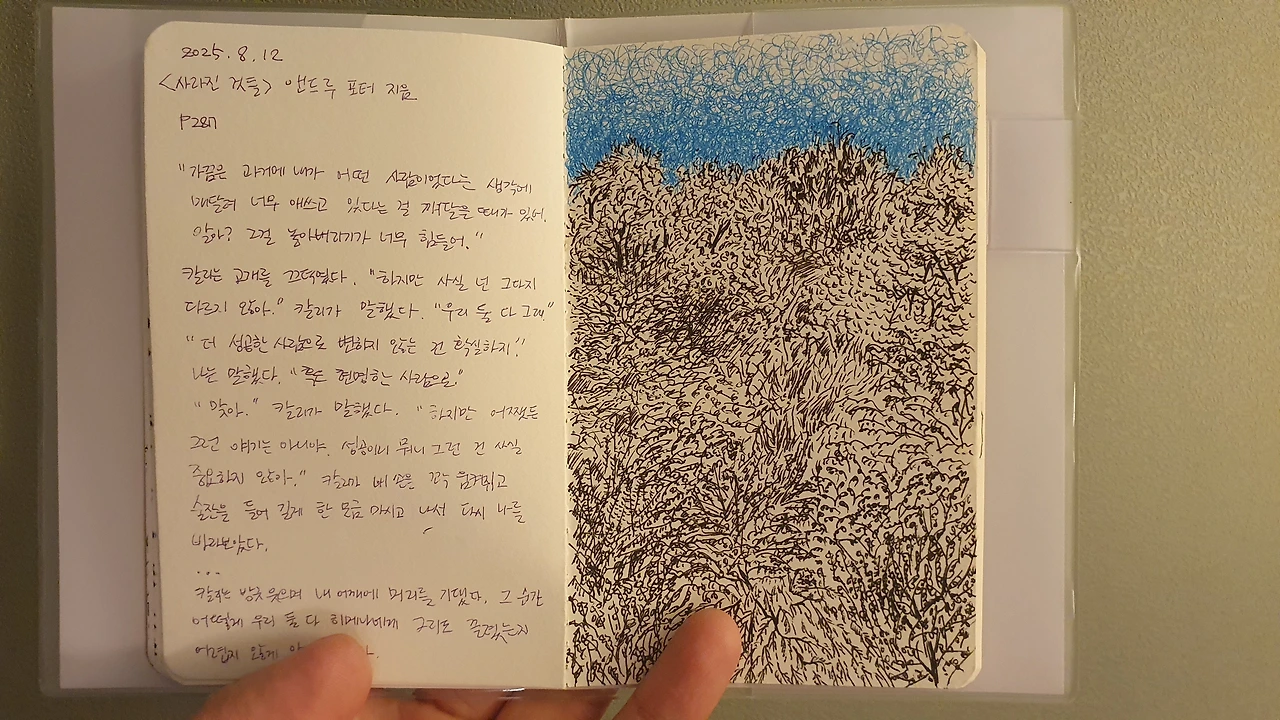 2025. 8. 12
<사라진 것들> 앤드루 포터 지음
P287
"가끔은 과거에 내가 어떤 사람이었다는 생각에
매달려 너무 애쓰고 있다는 걸 깨달을 때가 있어.
알아? 그걸 놓아버리기가 너무 힘들어."
칼리는 고개를 끄덕였다. "하지만 사실 넌 그다지
다르지 않아." 칼리가 말했다. "우리 둘 다 그래."
"더 성공한 사람으로 변하지 않는 건 확실하지."
나는 말했다. "혹은 현명한 사람으로."
"맞아." 칼리가 말했다. "하지만 어쨌든
그런 얘기는 아니야. 성공이니 뭐니 그런 건 사실
중요하지 않아." 칼리가 내 손을 꼭 움켜쥐고
술잔을 들어 길게 한 모금 마시고 나서 다시 나를
바라보았다.
...
칼리는 방긋 웃으며 내 어깨에 머리를 기댔다. 그 순간
어떻게 우리 둘 다 히메나에게 그리도 끌렸는지
어렵지 않게 알